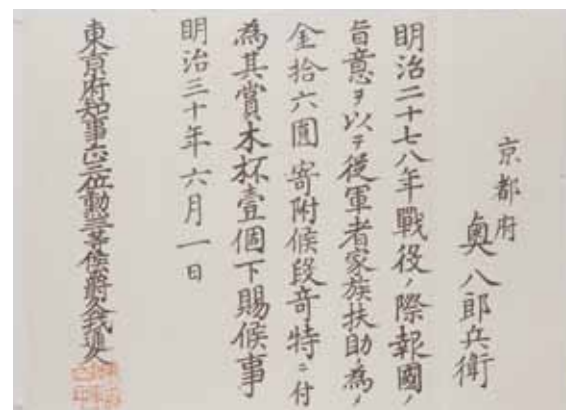 京都府
奥八郎兵衛
明治二十七八年戰役ノ際報國ノ
旨意ヲ以テ從軍者家族扶助ノ為ノ
金拾六圓寄附候段奇特ニ付
為其賞木杯壹個下賜候事
明治三十年六月一日
東京府知事正三位勲三等侯爵久我通久